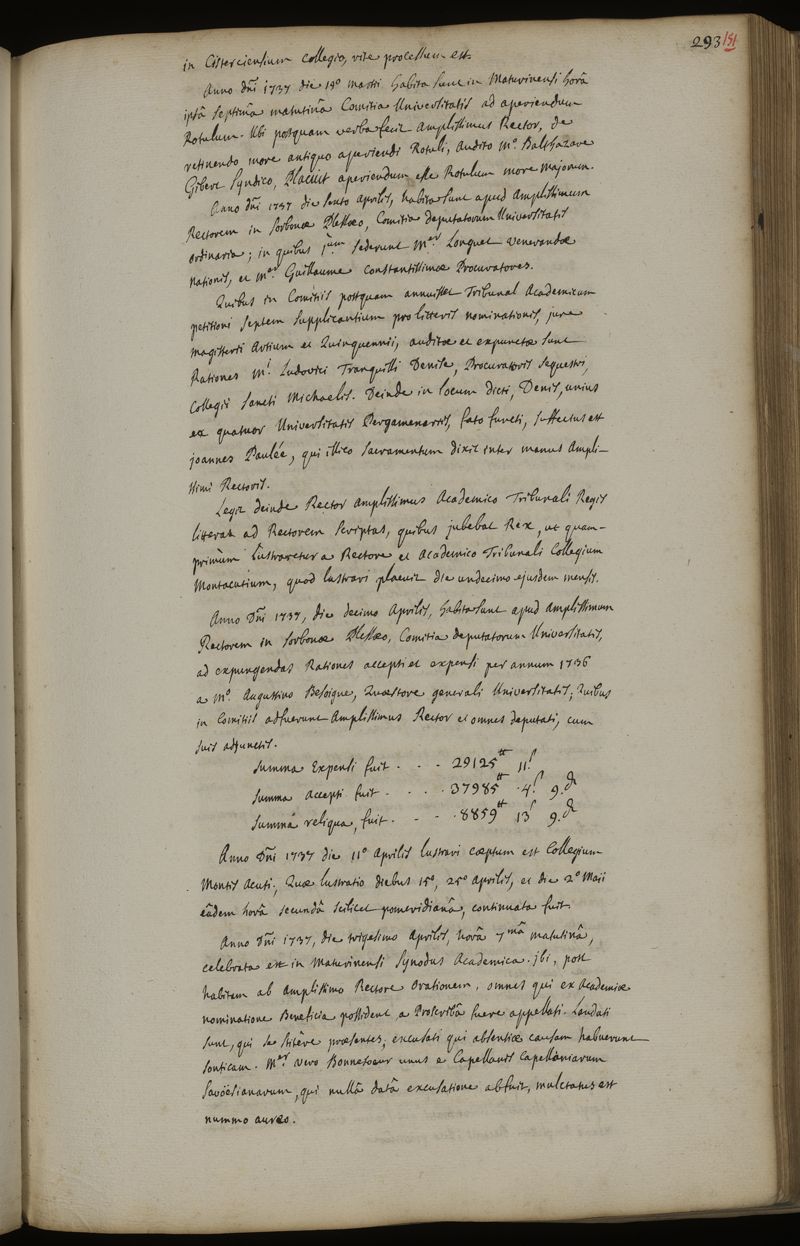 293 151
in Cisterciensium Collegio, rite processum est.
Anno Dni 1737 die 18° martii habita sunt in Maturinensi horâ
ipsâ septimâ matutinâ Comitia Universitatis ad aperiendum
Rotulum. Ubi postquam verba fecit Amplissimus Rector, de
retinendo more antiquo aperiendi Rotuli, audito M° Balthazare
Gibert Syndico, Placuit aperiendum esse Rotulum more majorum.
Anno Dni 1737 die sexto aprilis, habita sunt apud Amplissimum
Rectorem in Sorbonæ Plessæo, Comitia deputatorum Universitatis
ordinaria; in quibus 1um sederunt Mer Longuet venerandæ
Nationis, et Mer Guillaume constantissimæ Procuratores.
Quibus in Comitiis postquam annuisset Tribunal Academicum
petitioni septem supplicantium pro litteris nominationis, jure
magisterii Artium et Quinquennii, auditæ et expunctæ sunt
Rationes Mi Ludovici Tranquilli Denise, Procuratoris sequestri,
Collegii Sancti Michaelis. Deinde in locum dicti, Denis, unius
ex quatuor Universitatis Pergamenariis, fato functi, suffectus est
joannes Paulée, qui illico sacramentum dixit inter manus Ampli-
ssimi Rectoris.
Legit deinde Rector amplissimus Academico Tribunali Regis
litteras ad Rectorem scriptas, quibus jubebat Rex, ut quam-
primùm lustraretur a Rectore et Academico Tribunali Collegium
Montacutium, quod lustrari placuit die undecimo ejusdem mensis.
Anno Dni 1737, die decimo Aprilis, habita sunt apud amplissimum
Rectorem in Sorbonæ Plessæo, Comitia deputatorum Universitatis,
ad expungendas Rationes accepti et expensi per annum 1736
a M° Augustino Besoigne, Quæstore generali Universitatis; Quibus
in Comitiis adfuerunt Amplissimus Rector et omnes deputati, cum
suis adjunctis.
Summa Expensi fuit . - - 29125tt 11s
Summa Accepti fuit - . . . 37985tt 4s 9.d
Summa reliqua, fuit . - - . 8859tt 13s 9.d
Anno Dni 1737 die 11° Aprilis lustrari cœptum est Collegium
Montis Acuti, Quæ lustratio diebus 15°, 25° Aprilis, et die 2° Maii
eâdem horâ secundâ scilicet pomeridianâ, continuata fuit.
Anno Dni 1737, die trigesimo Aprilis, horâ 7mâ matutinâ,
celebrata est in Maturinensi Synodus Academica. jbi, post
habitam ab amplissimo Rectore Orationem, omnes qui ex Academiæ
nominatione Beneficia possident, a Proscribâ fuere appellati. Laudati
sunt, qui se stitêre præsentes; excusati qui absentiæ causam habuerunt
sonticam. Mer vero Bonnetoeur unus e Capellanis Capellaniarum
Savoësianarum, qui nullâ datâ excusatione abfuit, mulctatus est
nummo aureo.